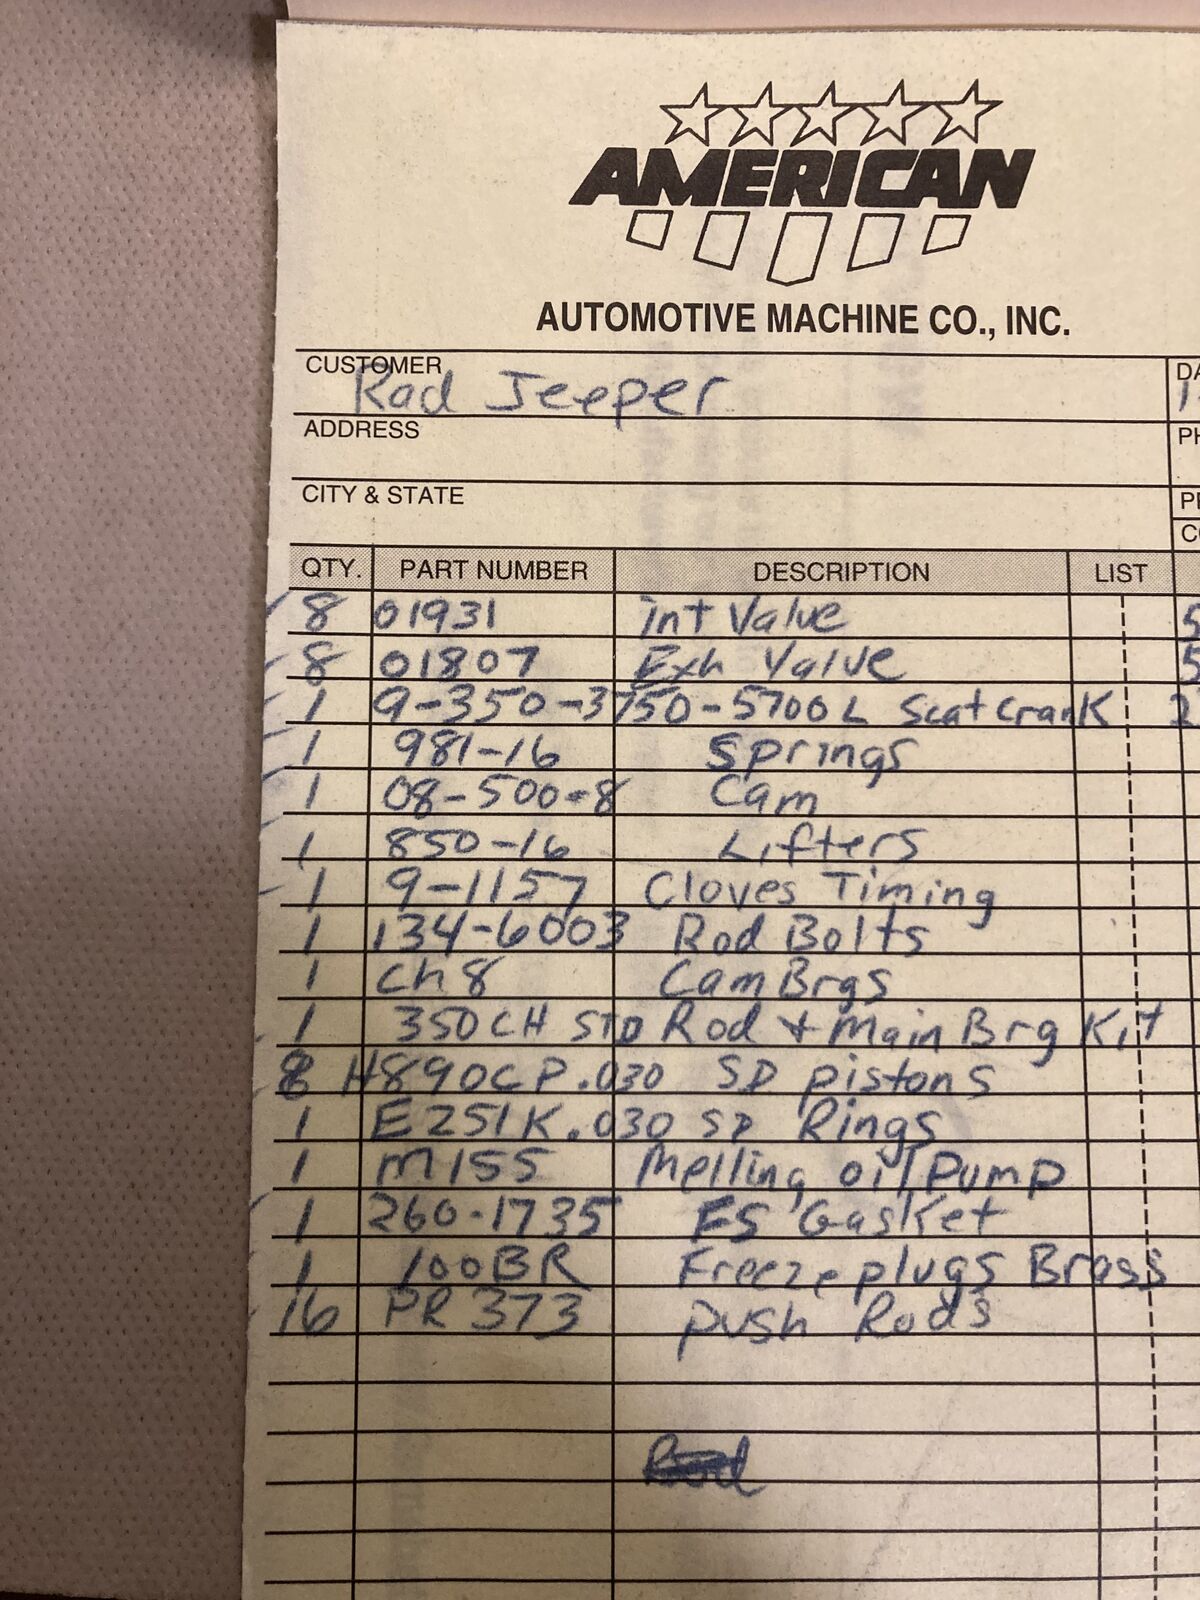 AMERICAN
AUTOMOTIVE MACHINE CO., INC.
CUSTOMER
Rad Jeeper
ADDRESS
CITY & STATE
QTY. PART NUMBER DESCRIPTION LIST
8 01931 int Valve
8 01807 Exh Valve
1 9-350-3750-5700L Scat Crank
1 981-16 Springs
1 08-500-8 Cam
1 850-16 Lifters
1 9-1157 Cloves Timing
1 134-6003 Rod Bolts
1 Ch8 Cam Brgs
1 350CH STD Rod + Main Brg Kit
8 H890CP.030 SP pistons
1 E251K.030 SP Rings
1 M155 Melling oil Pump
1 260-1735 FS Gasket
1 100BR Freeze plugs Brass
16 PR 373 push Rods